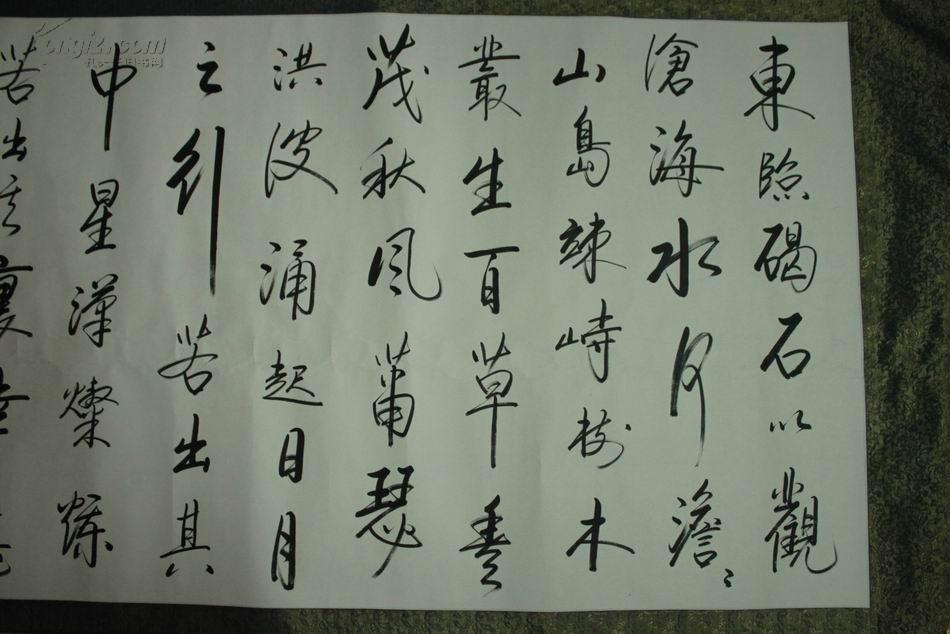 東臨碣石以觀
滄海水何澹〻
山島竦峙樹木
叢生百草豐
茂秋風蕭瑟
洪波涌起日月
之行若出其
中星漢燦爛
若出其裏